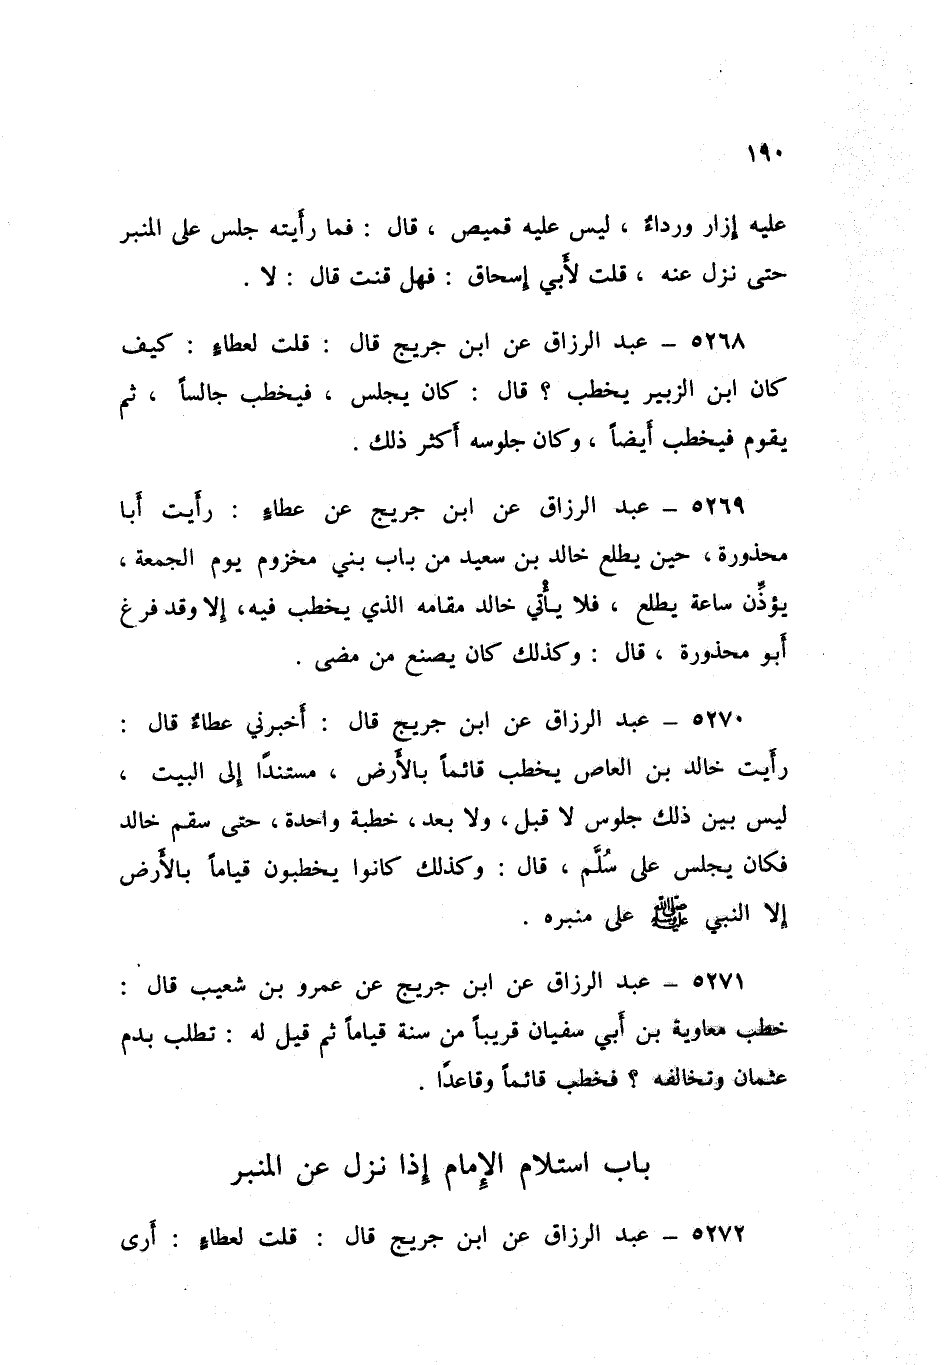 ١٩٠
عليه إزار ورداءٌ ، ليس عليه قميص ، قال : فما رأَيته جلس على المنبر
حتى نزل عنه ، قلت لأَبي إسحاق : فهل قنت قال : لا .
٥٢٦٨ – عبد الرزاق عن ابن جريج قال : قلت لعطاءٍ : كيف
كان ابن الزبير يخطب ؟ قال : كان يجلس ، فيخطب جالساً ، ثم
يقوم فيخطب أَيضاً ، وكان جلوسه أَكثر ذلك .
٥٢٦٩ – عبد الرزاق عن ابن جريج عن عطاءٍ : رأَيت أَبا
محذورة ، حين يطلع خالد بن سعيد من باب بني مخزوم يوم الجمعة ،
يؤذِّن ساعة يطلع ، فلا يأْتي خالد مقامه الذي يخطب فيه، إلا وقد فرغ
أَبو محذورة ، قال : وكذلك كان يصنع من مضى .
٥٢٧٠ – عبد الرزاق عن ابن جريج قال : أَخبرني عطاءٌ قال :
رأَيت خالد بن العاص يخطب قائماً بالأَرض ، مستندًا إلى البيت ،
ليس بين ذلك جلوس لا قبل ، ولا بعد ، خطبة واحدة ، حتى سقم خالد
فكان يجلس على سُلَّم ، قال : وكذلك كانوا يخطبون قياماً بالأَرض
إلا النبي ﷺ على منبره .
٥٢٧١ – عبد الرزاق عن ابن جريج عن عمرو بن شعيب قال :
خطب معاوية بن أَبي سفيان قريباً من سنة قياماً ثم قيل له : تطلب بدم
عثمان وتخالفه ؟ فخطب قائماً وقاعدًا .
باب استلام الإمام إذا نزل عن المنبر
٥٢٧٢ – عبد الرزاق عن ابن جريج قال : قلت لعطاءٍ : أَرى